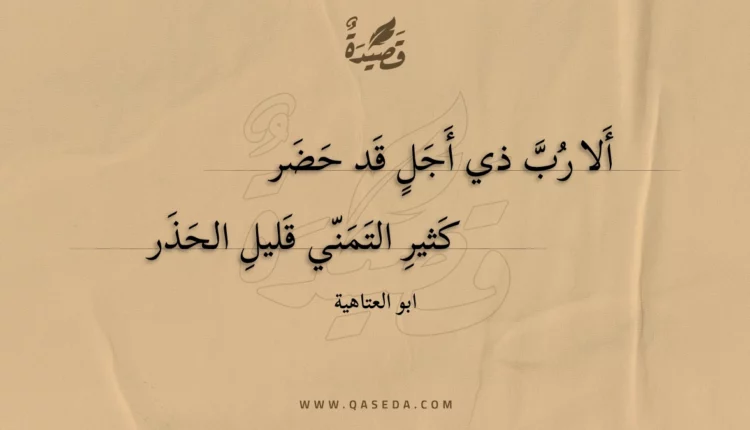 قَصِيدَةٌ
أَلا رُبَّ ذي أَجَلٍ قَد حَضَر
كَثيرِ التَمَنّي قَليلِ الحَذَر
ابو العتاهية
WWW.QASEDA.COM